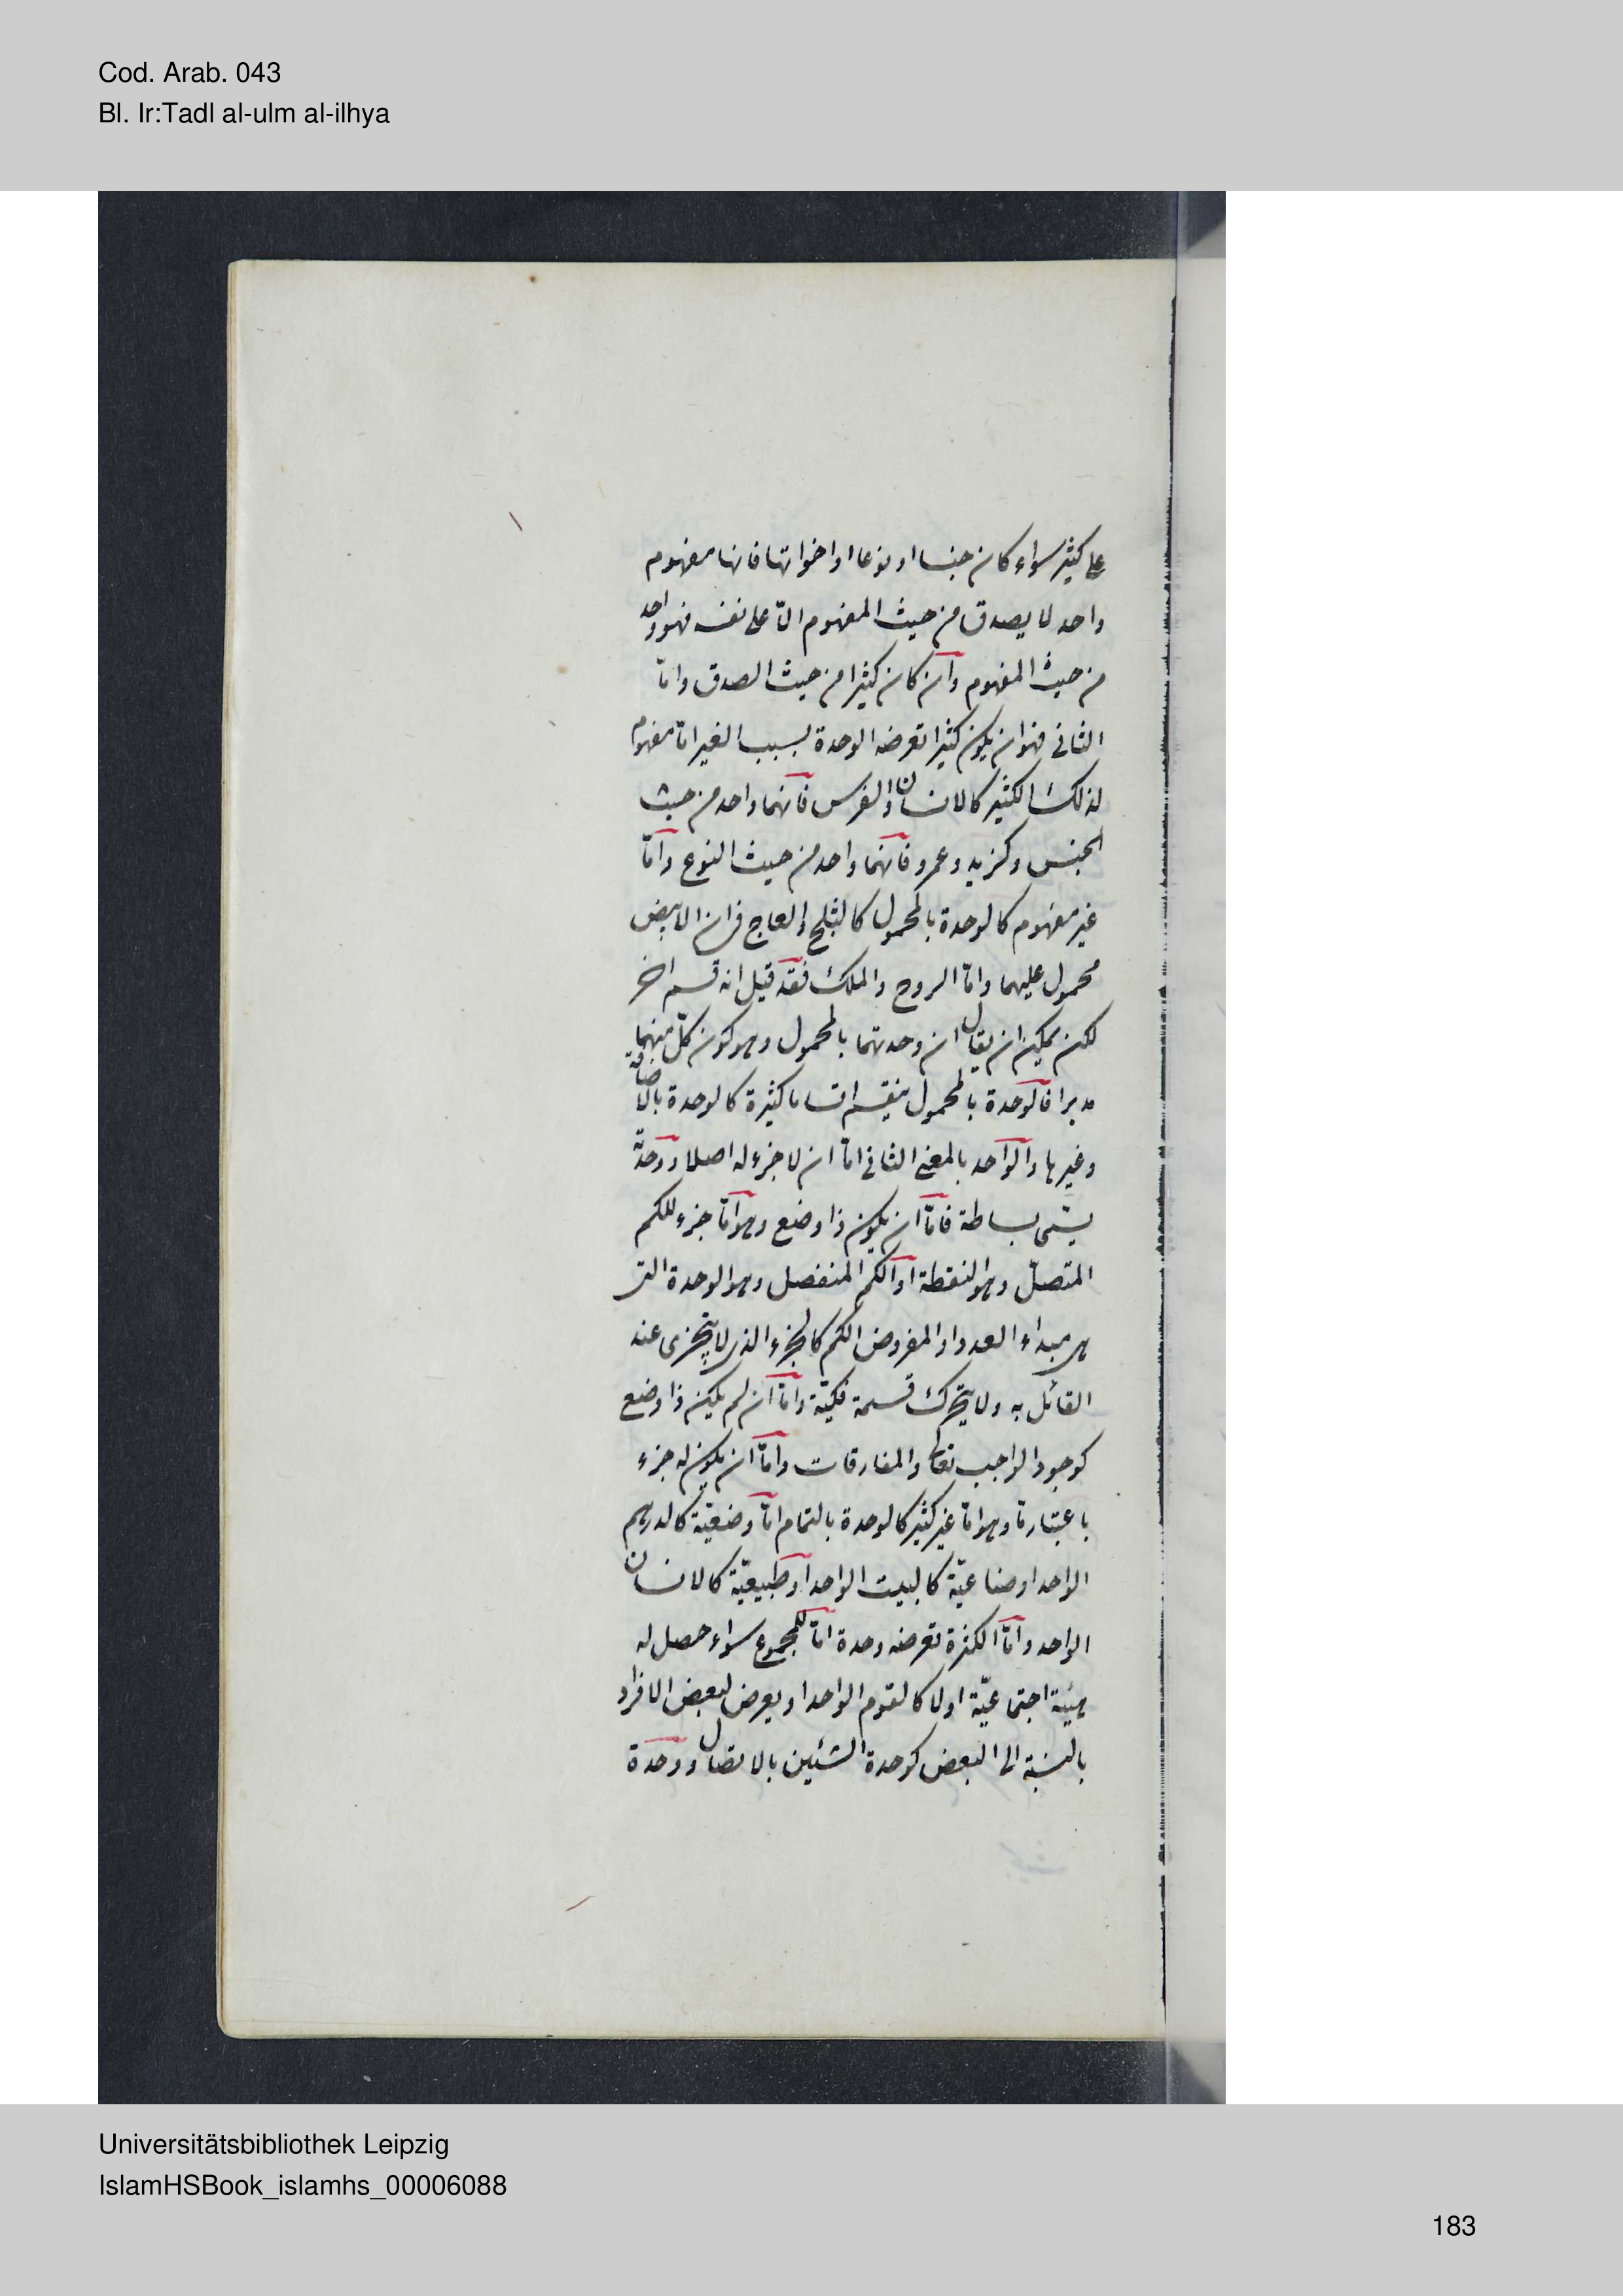 Cod. Arab. 043
Bl. Ir:Tadl al-ulm al-ilhya
على كثير سواء كان جنسا او نوعا او اخواتها فانها مفهوم
واحد لا يصدق من حيث المفهوم الّا على نفسه فهو واحد
من حيث المفهوم وان كان كثيرا من حيث الصدق وامّا
الثانى فهو ان يكون كثيرا تعرضه الوحدة بسبب الغير امّا مفهوم
لذلك الكثير كالانسان والفرس فانهما واحد من حيث
الجنس وكزيد وعمرو فانهما واحد من حيث النوع وامّا
غير مفهوم كالوحدة بالمحمول كالثلج والعاج فان الابيض
محمول عليهما وامّا الروح والملك فقد قيل انه قسم اخر
لكن يمكن ان يقال ان وحدتهما بالمحمول وهو كون كلّ منهما
مدبرا فالوحدة بالمحمول ينقسم اقساما كثيرة كالوحدة بالاضافة
وغيرها والواحد بالمعنى الثانى امّا ان لا جزء له اصلا ووحدته
يسمّى بساطة فامّا ان يكون ذا وضع وهو امّا جزء للكم
المتصلّ وهو النقطة او الكم المنفصل وهو الوحدة التى
هى مبداء العدد او المفروض الكم كالجزء الذى لا يتجزى عند
القائل به ولا يتحرك قسمة فكيّة وامّا ان لم يكن ذا وضع
كوجود الواجب تعالى والمفارقات وامّا ان يكون له جزء
باعتبار مّا وهو امّا غير كثير كالوحدة بالتمام امّا وضعيّة كالدرهم
الواحد او صناعيّة كالبيت الواحد او طبيعيّة كالانسان
الواحد وامّا الكثرة تعرضه وحدة امّا للمجموع سواء حصل له
هيئة اجتماعيّة اولا كالقوم الواحد او يعرض لبعض الافراد
بالنسبة الى البعض كوحدة الشئين بالاتصال ووحدة
Universitätsbibliothek Leipzig
IslamHSBook_islamhs_00006088
183